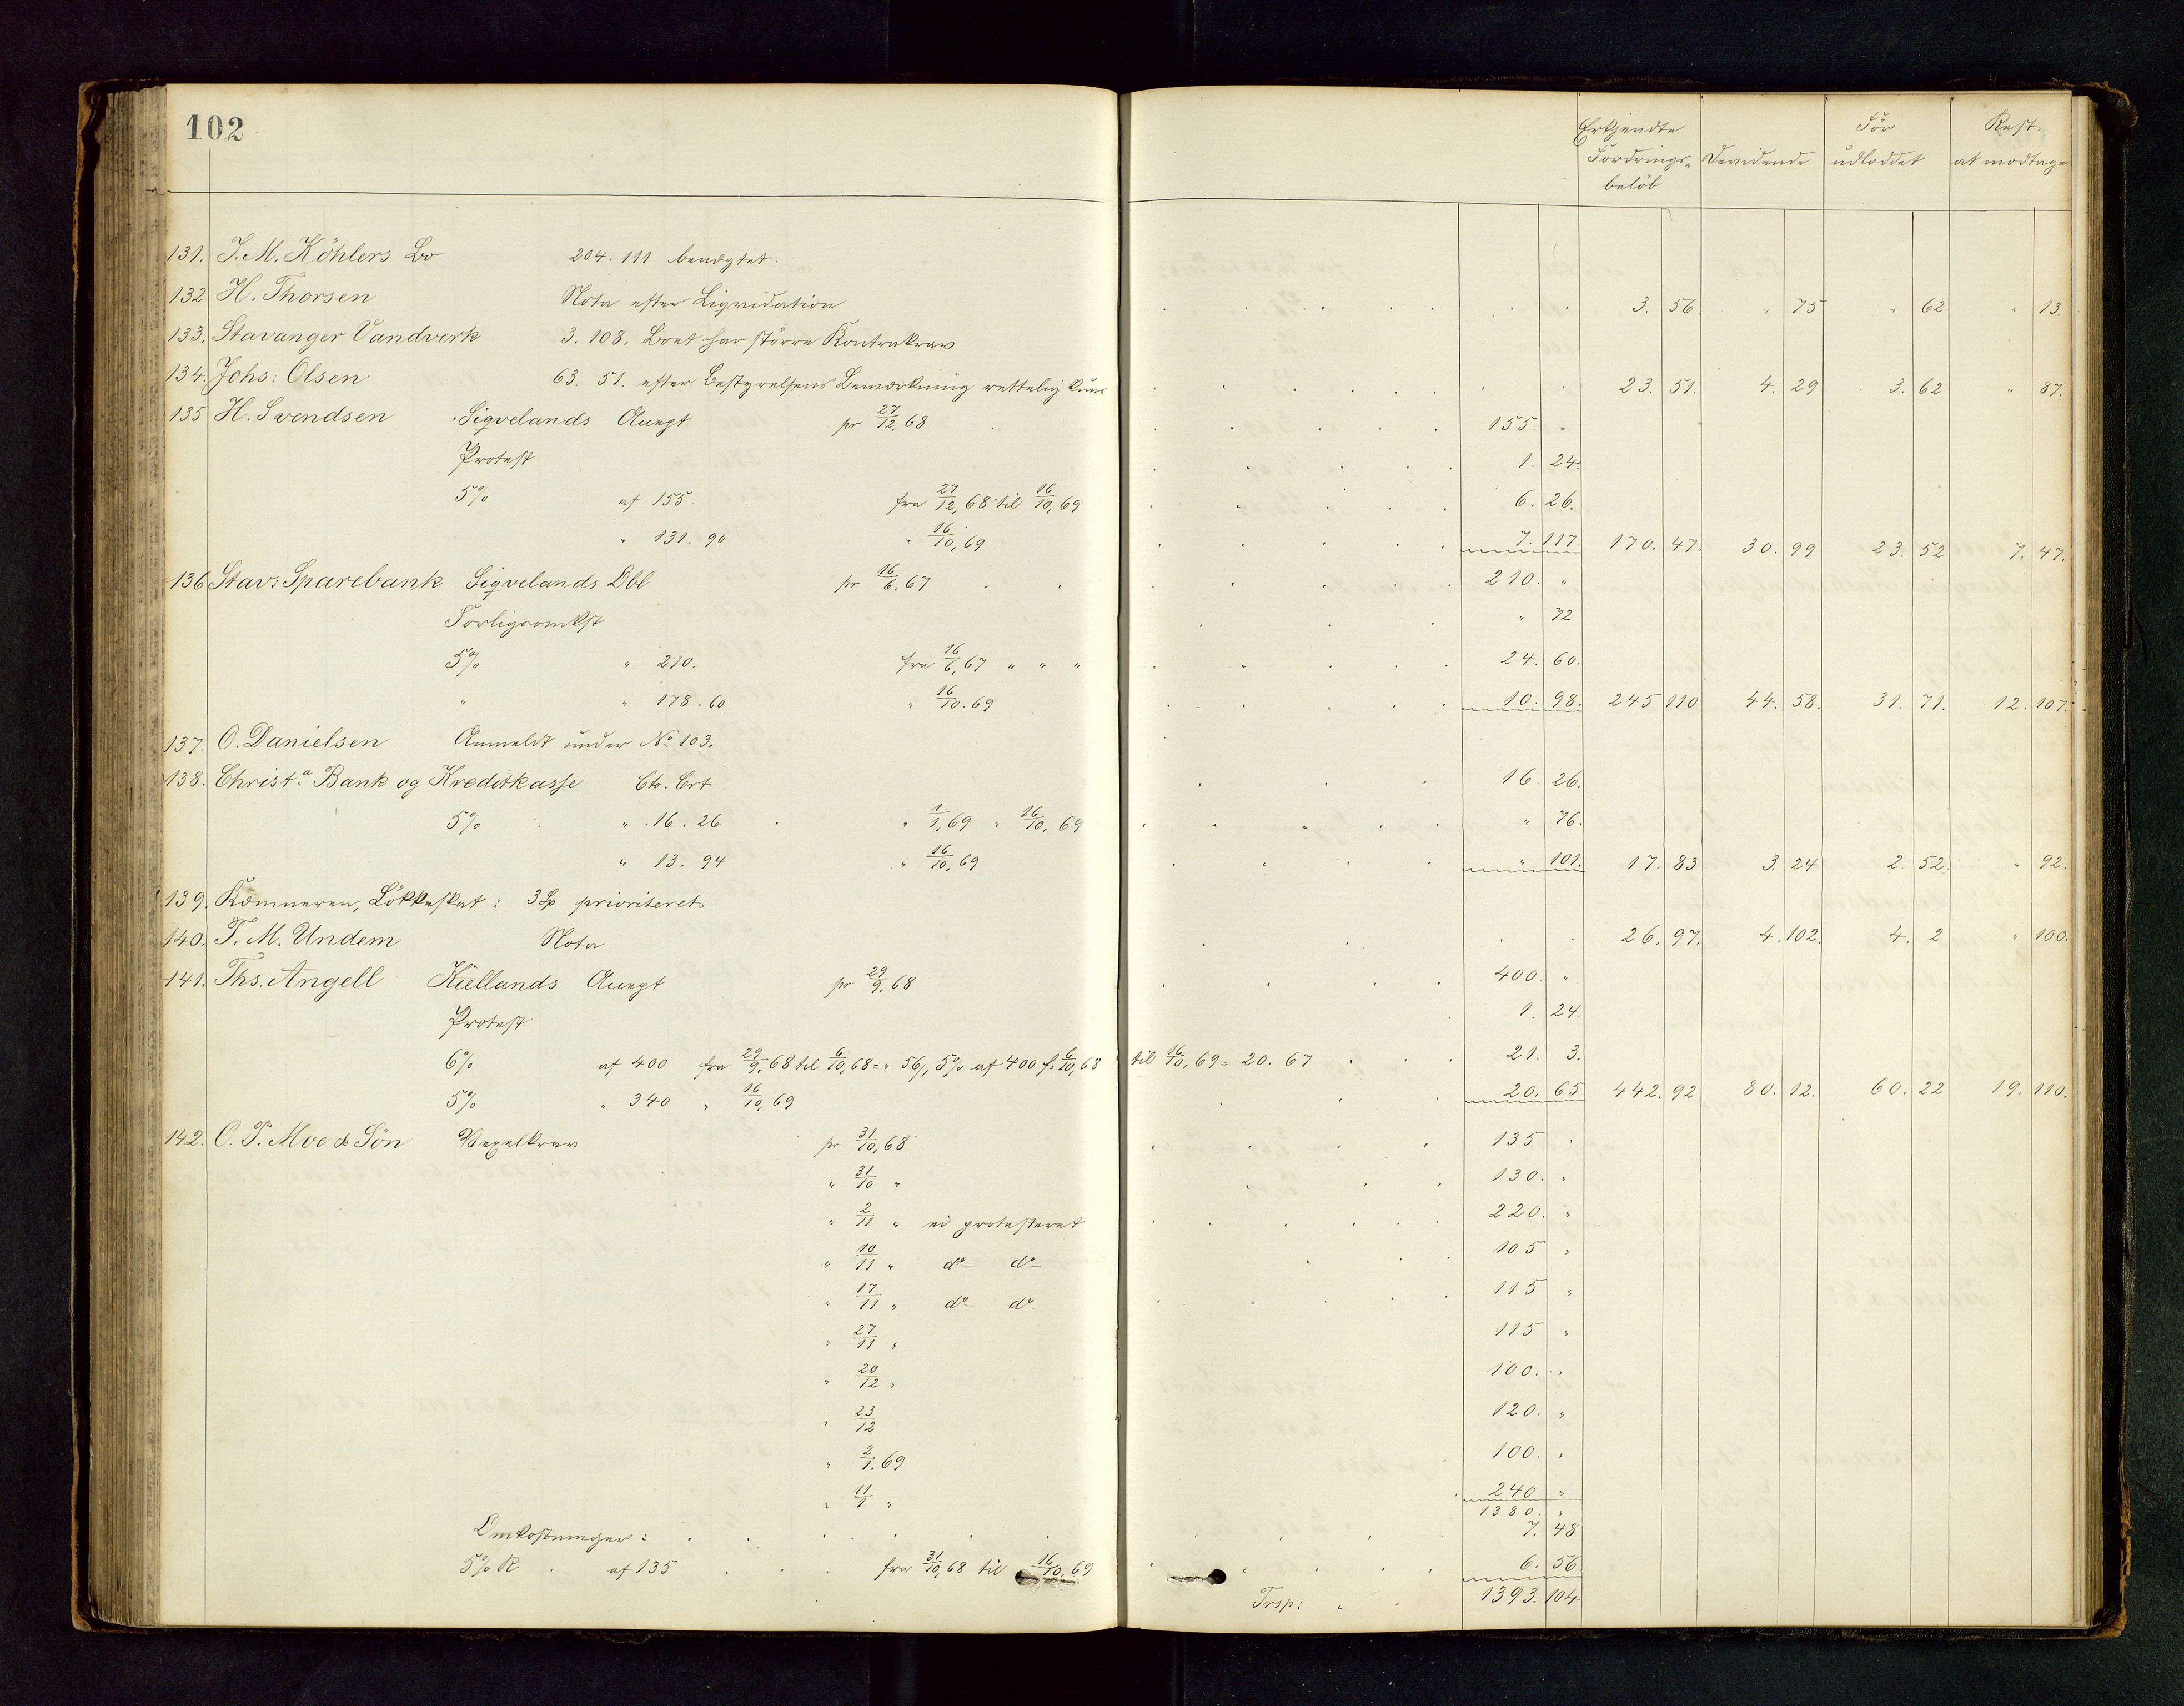 102
Erkjendte Fordrings- beløb Devidende Før udloddet Rest at modtage
131. J. M. Köhlers Bo 204. 111 benegtet.
132 H. Thorsen Nota efter Liqvidation 3. 56. " 75 " 62 " 13.
133. Stavanger Vandverk 3. 108. Boet har større Kontrakrav
134. Johs: Olsen 63. 51. efter Bestyrelsens Bemærkning rettelig kun 23. 51. 4. 29 3. 62 " 87.
135 H. Svendsen Sigvelands Acept pr 27/12 68 155. "
Protest 1. 24.
5% af 155 fra 27/12, 68 til 16/10, 69 6. 26.
" 131. 90 " 16/10, 69 7. 117. 170. 47. 30. 99 23. 52 7. 47.
136 Stavs Sparebank Sigvelands Obl pr 16/6, 67 210. "
Forligsomkst " 72
5% " 210. fra 16/6, 67 " " " 24. 60.
" " 178. 60 " 16/10. 69 10. 98. 245 110 44. 58. 31. 71. 12. 107.
137. O. Danielsen Anmeldt under No 103.
138. Christa Bank og Kreditkasse Cto. Crt 16. 26.
5% " 16. 26 " 1/1, 69 " 16/10, 69 " 76.
" 13. 94 " 16/10, 69 " 101. 17. 83 3. 24 2. 52. " 92.
139. Kæmneren, Løkkeskat: 3 Sp prioriteret
140. T. M. Undem Nota 26. 97. 4. 102. 4. 2 " 100.
141. Ths. Angell Kiellands Acept pr 29/9, 68 400. "
Protest 1. 24.
6% af 400 fra 29/9, 68 til 6/10, 68 = " 56, 5% af 400 f. 6/10, 68 til 16/10, 69 = 20. 67 21. 3.
5% " 340 " 16/10, 69 20. 65 442. 92 80. 12. 60. 22 19. 110.
142. O. T. Moe & Sön Vexelkrav pr 31/10, 68 135 "
" 31/10 " 130. "
" 2/11 " ei protesteret 220. "
" 10/11 " do do 105 "
" 17/11 " do do 115 "
" 27/11 " 115 "
" 20/12 " 100. "
" 23/12 120. "
" 2/1. 69 100. "
" 11/1 " 240 "
1380. "
Omkostninger: 7. 48
5% R af 135 fra 31/10, 68 til 16/10, 69 6. 56.
Trsp: 1393. 104